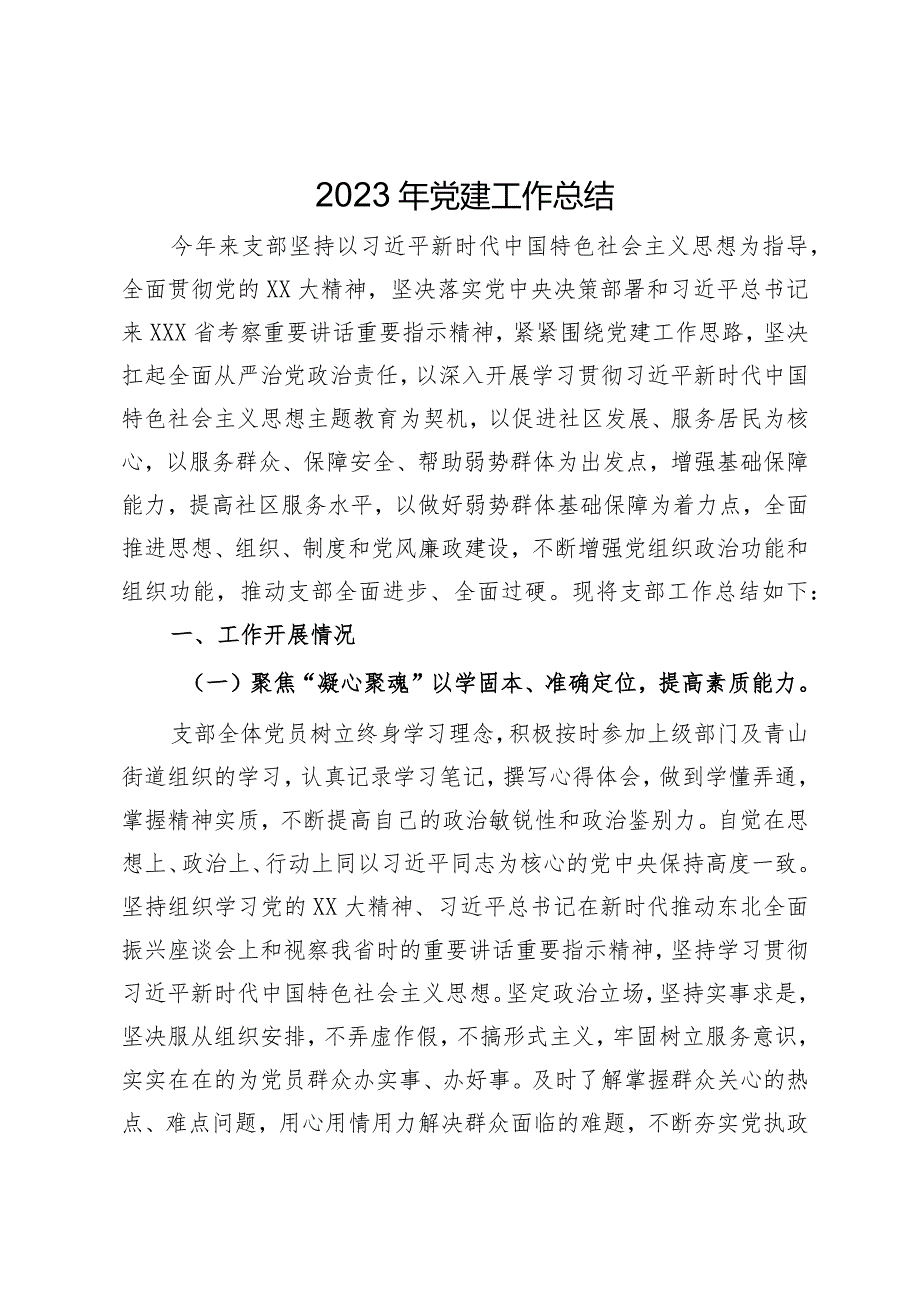 2023年党建工作总结
今年来支部坚持以习近平新时代中国特色社会主义思想为指导,
全面贯彻党的XX大精神，坚决落实党中央决策部署和习近平总书记
来XXX省考察重要讲话重要指示精神，紧紧围绕党建工作思路，坚决
扛起全面从严治党政治责任，以深入开展学习贯彻习近平新时代中国
特色社会主义思想主题教育为契机，以促进社区发展、服务居民为核
心，以服务群众、保障安全、帮助弱势群体为出发点，增强基础保障
能力，提高社区服务水平，以做好弱势群体基础保障为着力点，全面
推进思想、组织、制度和党风廉政建设，不断增强党组织政治功能和
组织功能，推动支部全面进步、全面过硬。现将支部工作总结如下：
一、工作开展情况
（一）聚焦“凝心聚魂”以学固本、准确定位，提高素质能力。
支部全体党员树立终身学习理念，积极按时参加上级部门及青山
街道组织的学习，认真记录学习笔记，撰写心得体会，做到学懂弄通，
掌握精神实质，不断提高自己的政治敏锐性和政治鉴别力。自觉在思
想上、政治上、行动上同以习近平同志为核心的党中央保持高度一致。
坚持组织学习党的XX大精神、习近平总书记在新时代推动东北全面
振兴座谈会上和视察我省时的重要讲话重要指示精神，坚持学习贯彻
习近平新时代中国特色社会主义思想。坚定政治立场，坚持实事求是，
坚决服从组织安排，不弄虚作假，不搞形式主义，牢固树立服务意识，
实实在在的为党员群众办实事、办好事。及时了解掌握群众关心的热
点、难点问题，用心用情用力解决群众面临的难题，不断夯实党执政